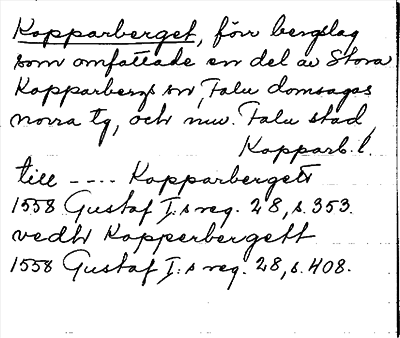 Kopparberget, förr bergslag
som omfattade en del av Stora
Kopparbergs sn, Falu domsagas
norra tg, och nuv. Falu stad,
Kopparb. l.
till ---- Kopparbergett
1558 Gustaf I:s reg. 28, s. 353.
vedh Kopperbergett
1558 Gustaf I:s reg. 28, s. 408.